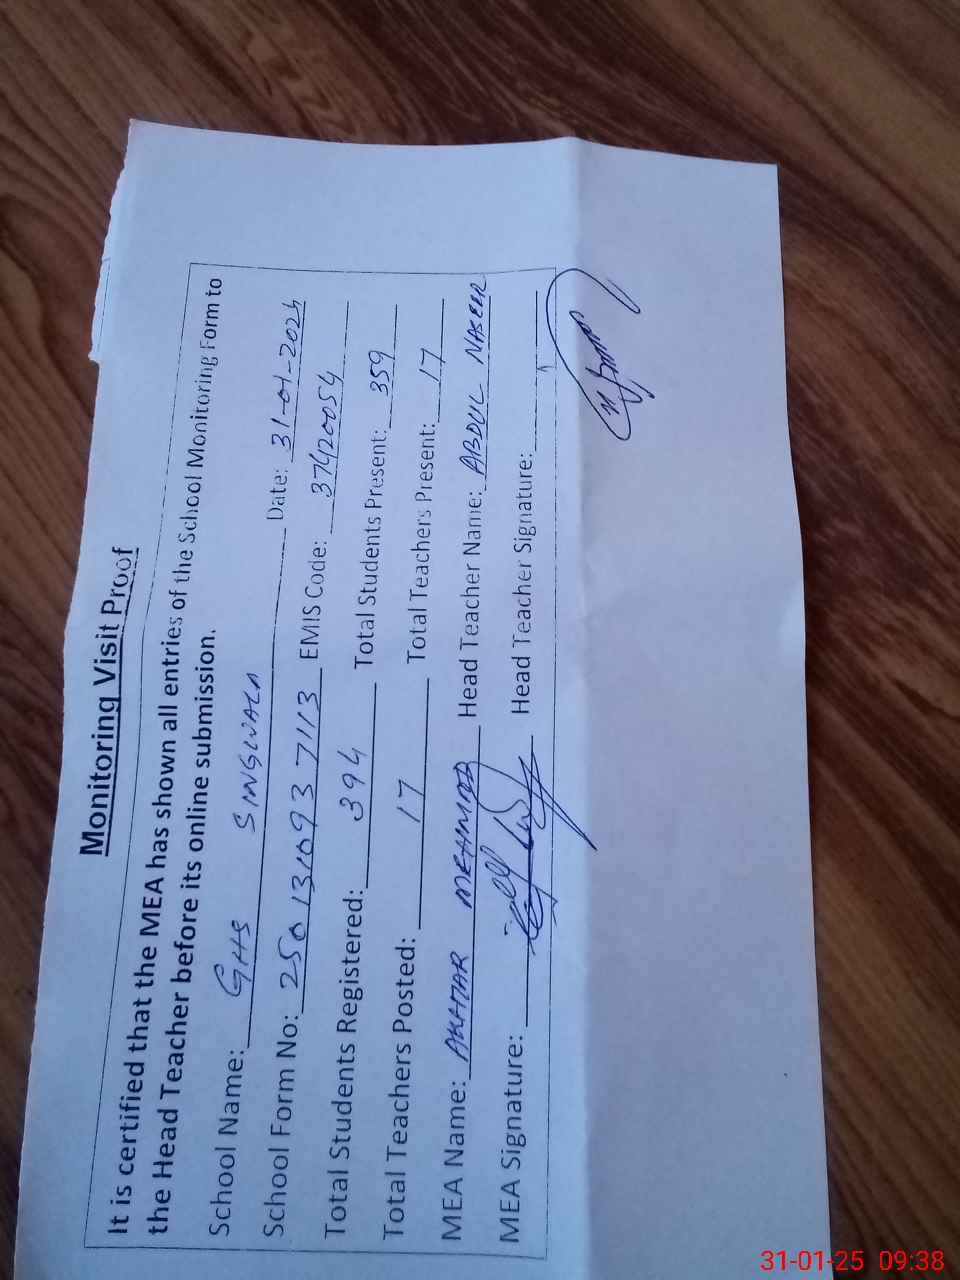 Monitoring Visit Proof
It is certified that the MEA has shown all entries of the School Monitoring Form to
the Head Teacher before its online submission.
School Name: GHS SINGWALA Date: 31-01-2025
School Form No: 250131093 7113 EMIS Code: 37420054
Total Students Registered: 394 Total Students Present: 359
Total Teachers Posted: 17 Total Teachers Present: 17
MEA Name: MEHMOOD Head Teacher Name: ABDUL NASEER
MEA Signature: Head Teacher Signature:
31-01-25 09:38